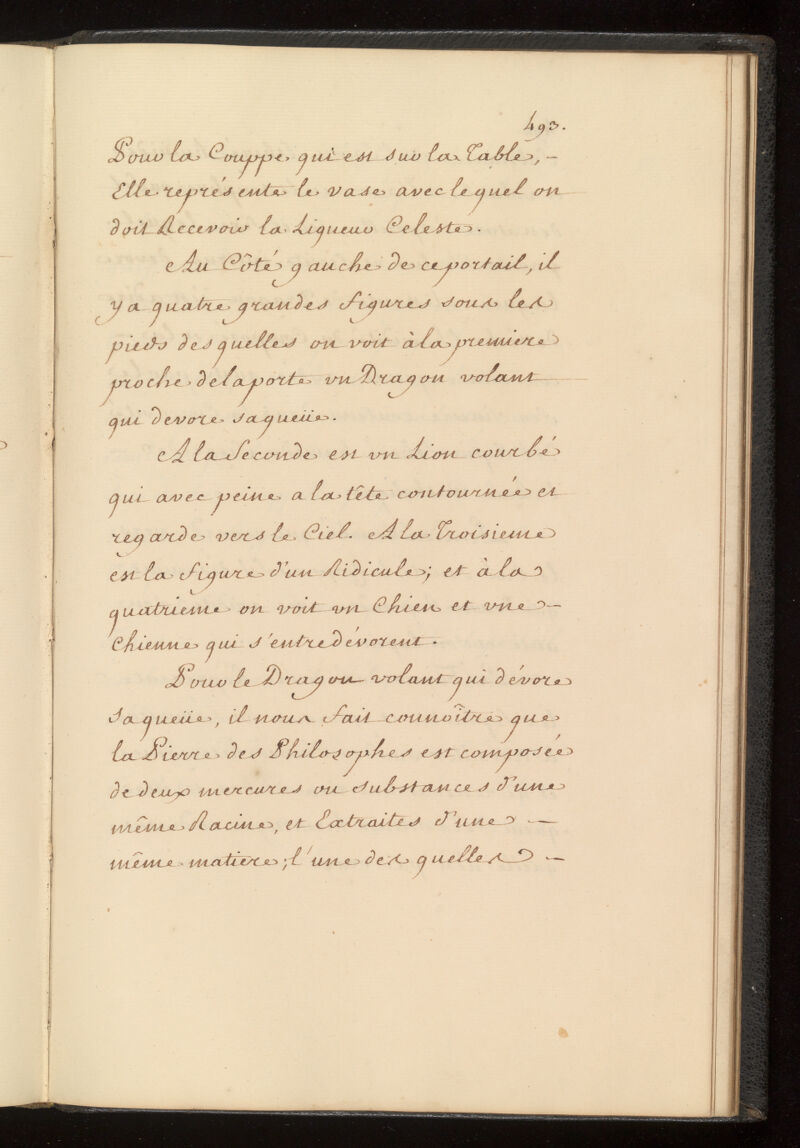 493.
Pour la Couppe qui est sur la Table, -
Elle représente le vase avec lequel on
doit Recevoir la Liqueur Celeste.
Au Côté gauche de ce portail, il
y a quatre grandes figures sous les
pieds desquelles on voit à la premiere
proche de la porte vn Dragon volant
qui devore sa queüe.
A la Seconde est vn Lion courbé
qui avec peine a la tête contournée et
regarde vers le Ciel. A la Troisieme
est la figure d'un Ridicule; et à la
quatrieme on voit vn Chien et vne -
Chienne qui s'entredévorent.
Pour le Dragon volant qui dévore
sa queüe, il nous fait connoître que
la Pierre des Philosophes est composée
de deux mercures ou substances d'une
même Racine, et Extraites d'une -
même matiere; l'une des quelles -